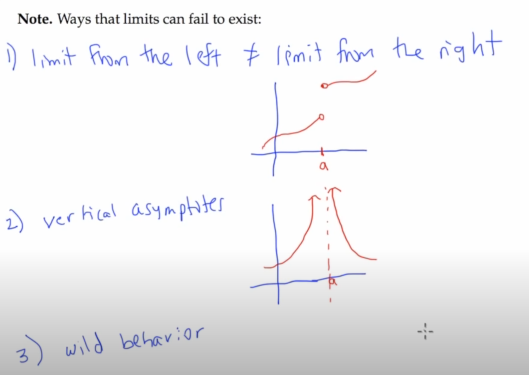 Note. Ways that limits can fail to exist:
1) limit from the left ≠ limit from the right
a
2) vertical asymptotes
a
3) wild behavior